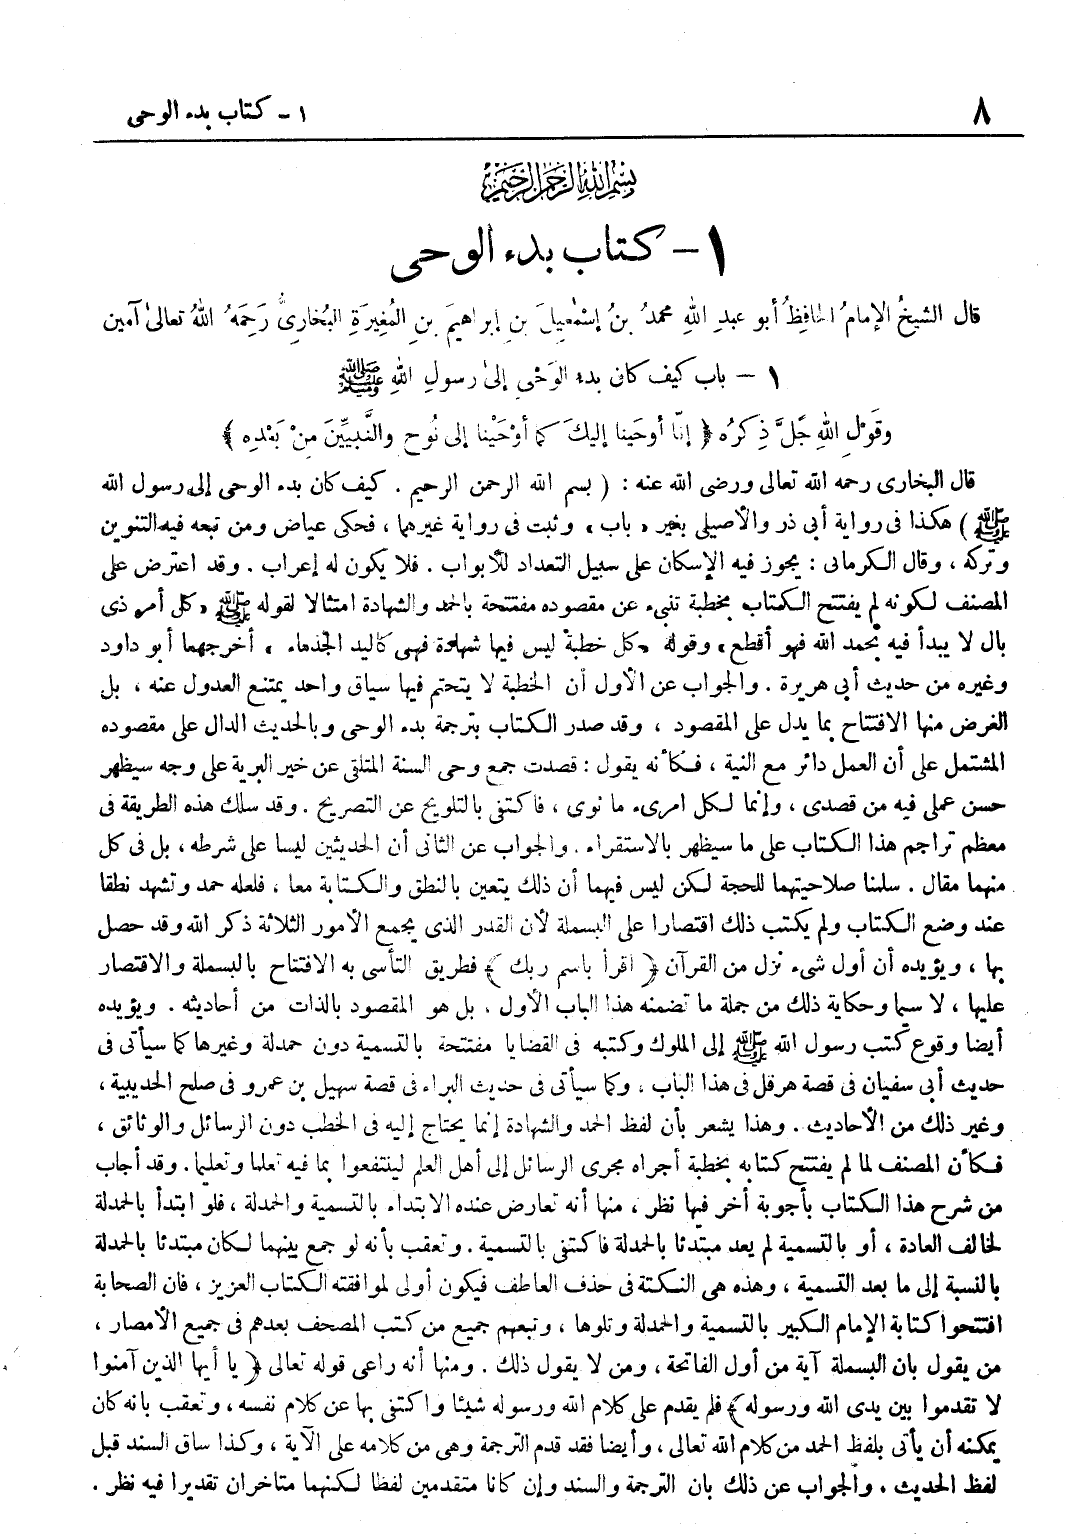 ٨
١ - كتاب بدء الوحى
بسم الله الرحمن الرحيم
١ - كتاب بدء الوحى
قال الشيخُ الإمامُ الحافِظُ أبو عبدِ اللهِ محمدُ بنُ إسْمٰعِيلَ بنِ إبراهيمَ بنِ المُغِيرَةِ البُخارِىُّ رَحِمَهُ اللهُ تعالىٰ آمين
١ - باب كيف كان بدء الوَحْىِ إلىٰ رسولِ اللهِ ﷺ
وقَوْلِ اللهِ جَلَّ ذِكرُه ﴿ إنّا أوحَينا إليكَ كما أوْحَيْنا إلى نُوحٍ والنَّبيِّينَ مِنْ بَعْدِه ﴾
قال البخارى رحمه الله تعالى ورضى الله عنه : ( بسم الله الرحمن الرحيم . كيف كان بدء الوحى إلى رسول الله
ﷺ ) هكذا فى رواية أبى ذر والأصيلى بغير « باب » وثبت فى رواية غيرهما ، فحكى عياض ومن تبعه فيه التنوين
وتركه ، وقال الكرمانى : يجوز فيه الإسكان على سبيل التعداد للأبواب . فلا يكون له إعراب . وقد اعترض على
المصنف لكونه لم يفتتح الكتاب بخطبة تنبىء عن مقصوده مفتتحة بالحمد والشهادة امتثالا لقوله ﷺ « كل أمر ذى
بال لا يبدأ فيه بحمد الله فهو أقطع » وقوله « كل خطبة ليس فيها شهادة فهى كاليد الجذماء » أخرجهما أبو داود
وغيره من حديث أبى هريرة . والجواب عن الأول أن الخطبة لا يتحتم فيها سياق واحد يمتنع العدول عنه ، بل
الغرض منها الافتتاح بما يدل على المقصود ، وقد صدر الكتاب بترجمة بدء الوحى وبالحديث الدال على مقصوده
المشتمل على أن العمل دائر مع النية ، فكأنه يقول : قصدت جمع وحى السنة المتلقى عن خير البرية على وجه سيظهر
حسن عملى فيه من قصدى ، وإنما لكل امرىء ما نوى ، فاكتفى بالتلويح عن التصريح . وقد سلك هذه الطريقة فى
معظم تراجم هذا الكتاب على ما سيظهر بالاستقراء . والجواب عن الثانى أن الحديثين ليسا على شرطه ، بل فى كل
منهما مقال . سلمنا صلاحيتهما للحجة لكن ليس فيهما أن ذلك يتعين بالنطق والكتابة معا ، فلعله حمد وتشهد نطقا
عند وضع الكتاب ولم يكتب ذلك اقتصارا على البسملة لأن القدر الذى يجمع الأمور الثلاثة ذكر الله وقد حصل
بها ، ويؤيده أن أول شىء نزل من القرآن ﴿ اقرأ باسم ربك ﴾ فطريق التأسى به الافتتاح بالبسملة والاقتصار
عليها ، لا سيما وحكاية ذلك من جملة ما تضمنه هذا الباب الأول ، بل هو المقصود بالذات من أحاديثه . ويؤيده
أيضا وقوع كتب رسول الله ﷺ إلى الملوك وكتبه فى القضايا مفتتحة بالتسمية دون حمدلة وغيرها كما سيأتى فى
حديث أبى سفيان فى قصة هرقل فى هذا الباب ، وكما سيأتى فى حديث البراء فى قصة سهيل بن عمرو فى صلح الحديبية ،
وغير ذلك من الأحاديث . وهذا يشعر بأن لفظ الحمد والشهادة إنما يحتاج إليه فى الخطب دون الرسائل والوثائق ،
فكأن المصنف لما لم يفتتح كتابه بخطبة أجراه مجرى الرسائل إلى أهل العلم لينتفعوا بما فيه تعلما وتعليما . وقد أجاب
من شرح هذا الكتاب بأجوبة أخر فيها نظر ، منها أنه تعارض عنده الابتداء بالتسمية والحمدلة ، فلو ابتدأ بالحمدلة
لخالف العادة ، أو بالتسمية لم يعد مبتدئا بالحمدلة فاكتفى بالتسمية . وتعقب بأنه لو جمع بينهما لكان مبتدئا بالحمدلة
بالنسبة إلى ما بعد التسمية ، وهذه هى النكتة فى حذف العاطف فيكون أولى لموافقته الكتاب العزيز ، فان الصحابة
افتتحوا كتابة الإمام الكبير بالتسمية والحمدلة وتلوها ، وتبعهم جميع من كتب المصحف بعدهم فى جميع الأمصار ،
من يقول بان البسملة آية من أول الفاتحة ، ومن لا يقول ذلك . ومنها أنه راعى قوله تعالى ﴿ يا أيها الذين آمنوا
لا تقدموا بين يدى الله ورسوله ﴾ فلم يقدم على كلام الله ورسوله شيئا واكتفى بها عن كلام نفسه ، وتعقب بانه كان
يمكنه أن يأتى بلفظ الحمد من كلام الله تعالى ، وأيضا فقد قدم الترجمة وهى من كلامه على الآية ، وكذا ساق السند قبل
لفظ الحديث . والجواب عن ذلك بان الترجمة والسند وإن كانا متقدمين لفظا لكنهما متاخران تقديرا فيه نظر .